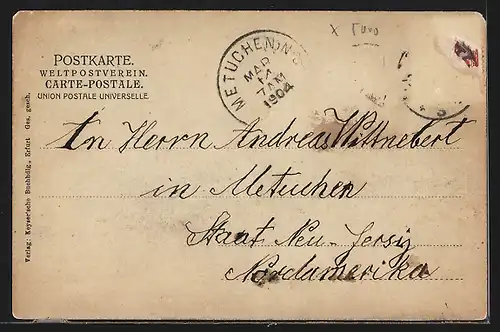 POSTKARTE.
WELTPOSTVEREIN.
CARTE-POSTALE.
UNION POSTALE UNIVERSELLE.
METUCHEN, N.J.
MAR
7AM
1904
An Herrn Andreas Wittnebert
in Metuchen
Staat Neu-Jersy
Nordamerika
Verlag: Keyser'sche Buchhdlg., Erfurt Ges. gesch.